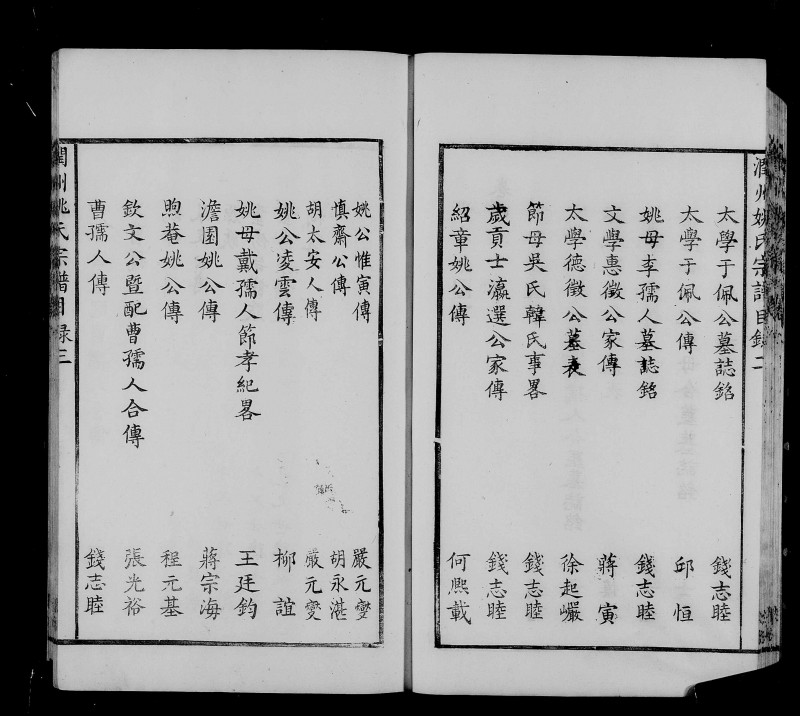 潤州姚氏宗譜目錄二
太學于佩公墓誌銘 錢志睦
太學于佩公傳 邱恒
姚母李孺人墓誌銘 錢志睦
文學惠徵公家傳 蔣寅
太學德徵公墓表 徐起巖
節母吳氏韓氏事畧 錢志睦
歲貢士瀛選公家傳 錢志睦
紹章姚公傳 何熙載
姚公惟寅傳 嚴元燮
慎齋公傳 胡永湛
胡太安人傳 嚴元燮
姚公凌雲傳 柳誼
姚母戴孺人節孝紀畧 王廷鈞
澹園姚公傳 蔣宗海
煦菴姚公傳 程元基
欽文公暨配曹孺人合傳 張光裕
曹孺人傳 錢志睦
潤州姚氏宗譜目錄三